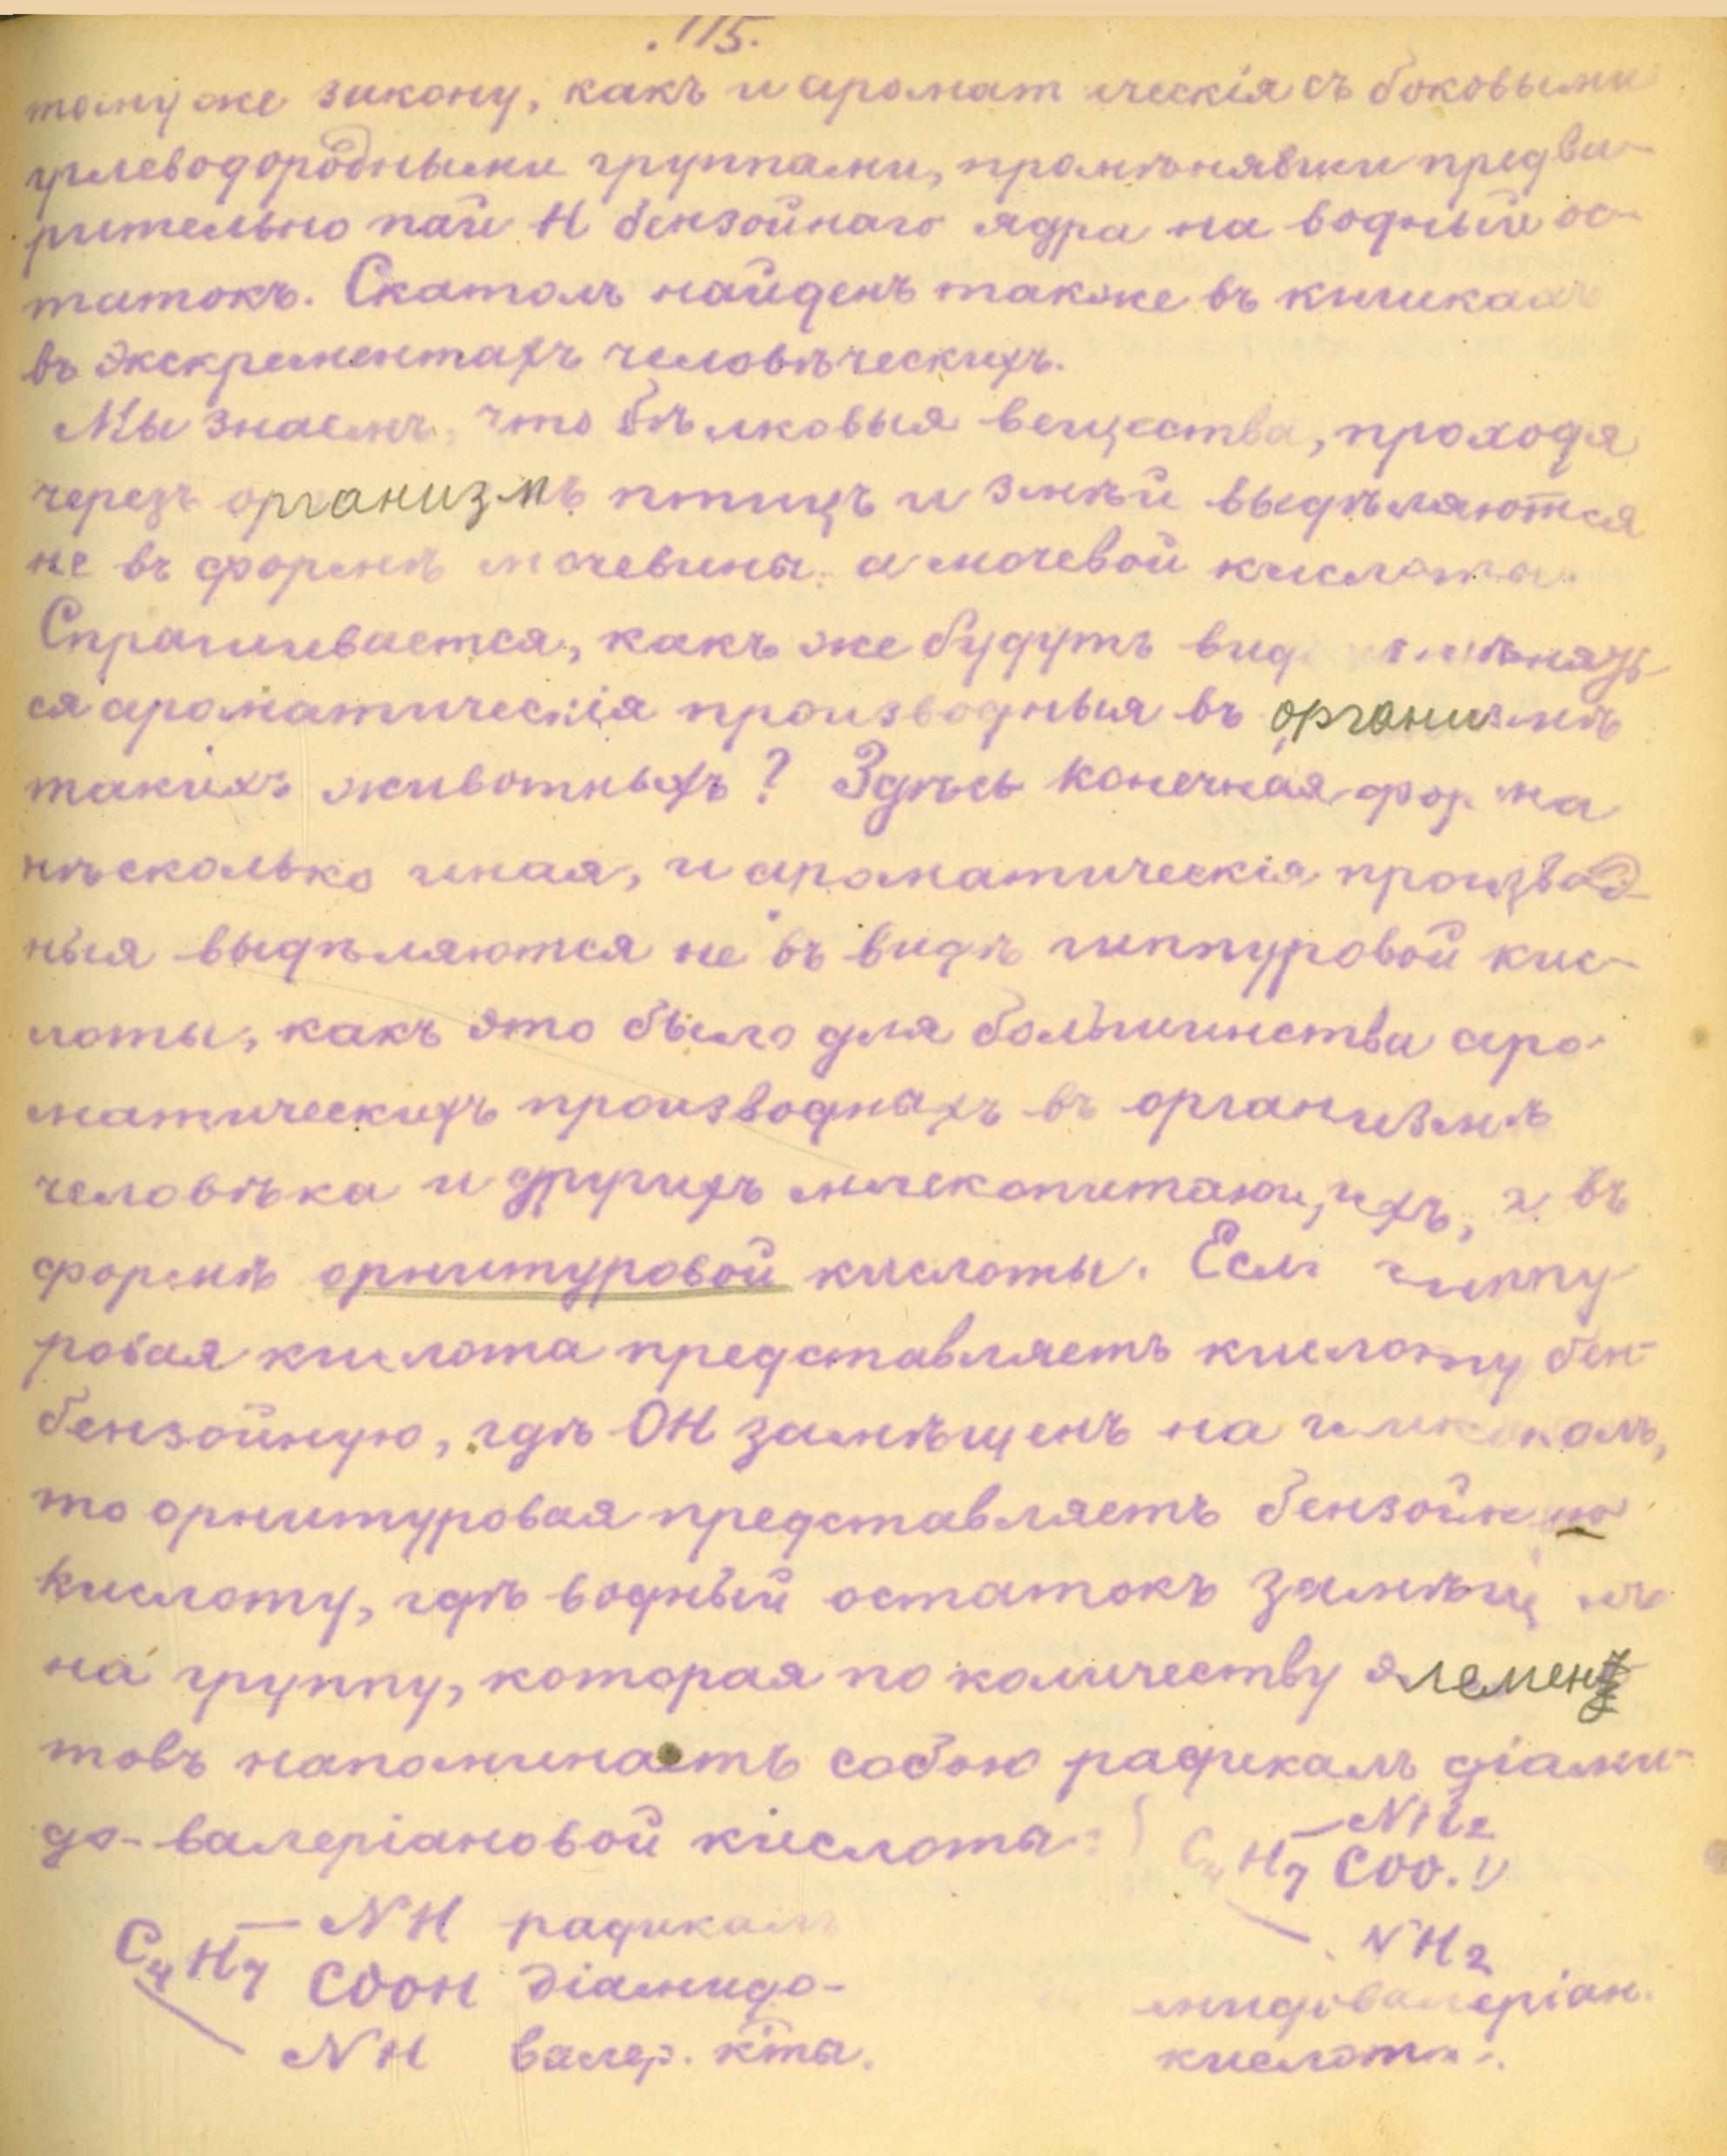 115.
тому же закону, какъ и аромат ическія съ боковыми
углеводородными группами, промѣнявши предва-
рительно пай Н бензойнаго ядра на водный ос-
татокъ. Скатолъ найденъ также въ кишкахъ
въ экскрементахъ человѣческихъ.
Мы знаемъ, что бѣлковыя вещества, проходя
черезъ организмъ птицъ и змѣй выдѣляются
не въ формѣ мочевины, а мочевой кислоты.
Спрашивается, какъ же будутъ
ся ароматическія производныя въ организмѣ
такихъ животныхъ? Здѣсь конечная форма
нѣсколько иная, и ароматическія производ
ныя выдѣляются не въ видѣ гиппуровой кис-
лоты, какъ это было для большинства аро-
матическихъ производныхъ въ организмѣ
человѣка и другихъ млекопитающихъ, а въ
формѣ орнитуровой кислоты. Если гиппу
ровая кислота представляетъ кислоту бен-
бензойную, гдѣ ОН замѣщенъ на гликоколь,
то орнитуровая представляетъ бензойную
кислоту, гдѣ водный остатокъ замѣщенъ
на группу, которая по количеству элемен
товъ напоминаетъ собою радикалъ діами-
до-валеріановой кислоты:
C4H7 — NH2
COO.
NH2
C4H7 — NH радикалъ
COOH діамидо-
NH валер. к-ты.
мидовалеріан.
кислоты.